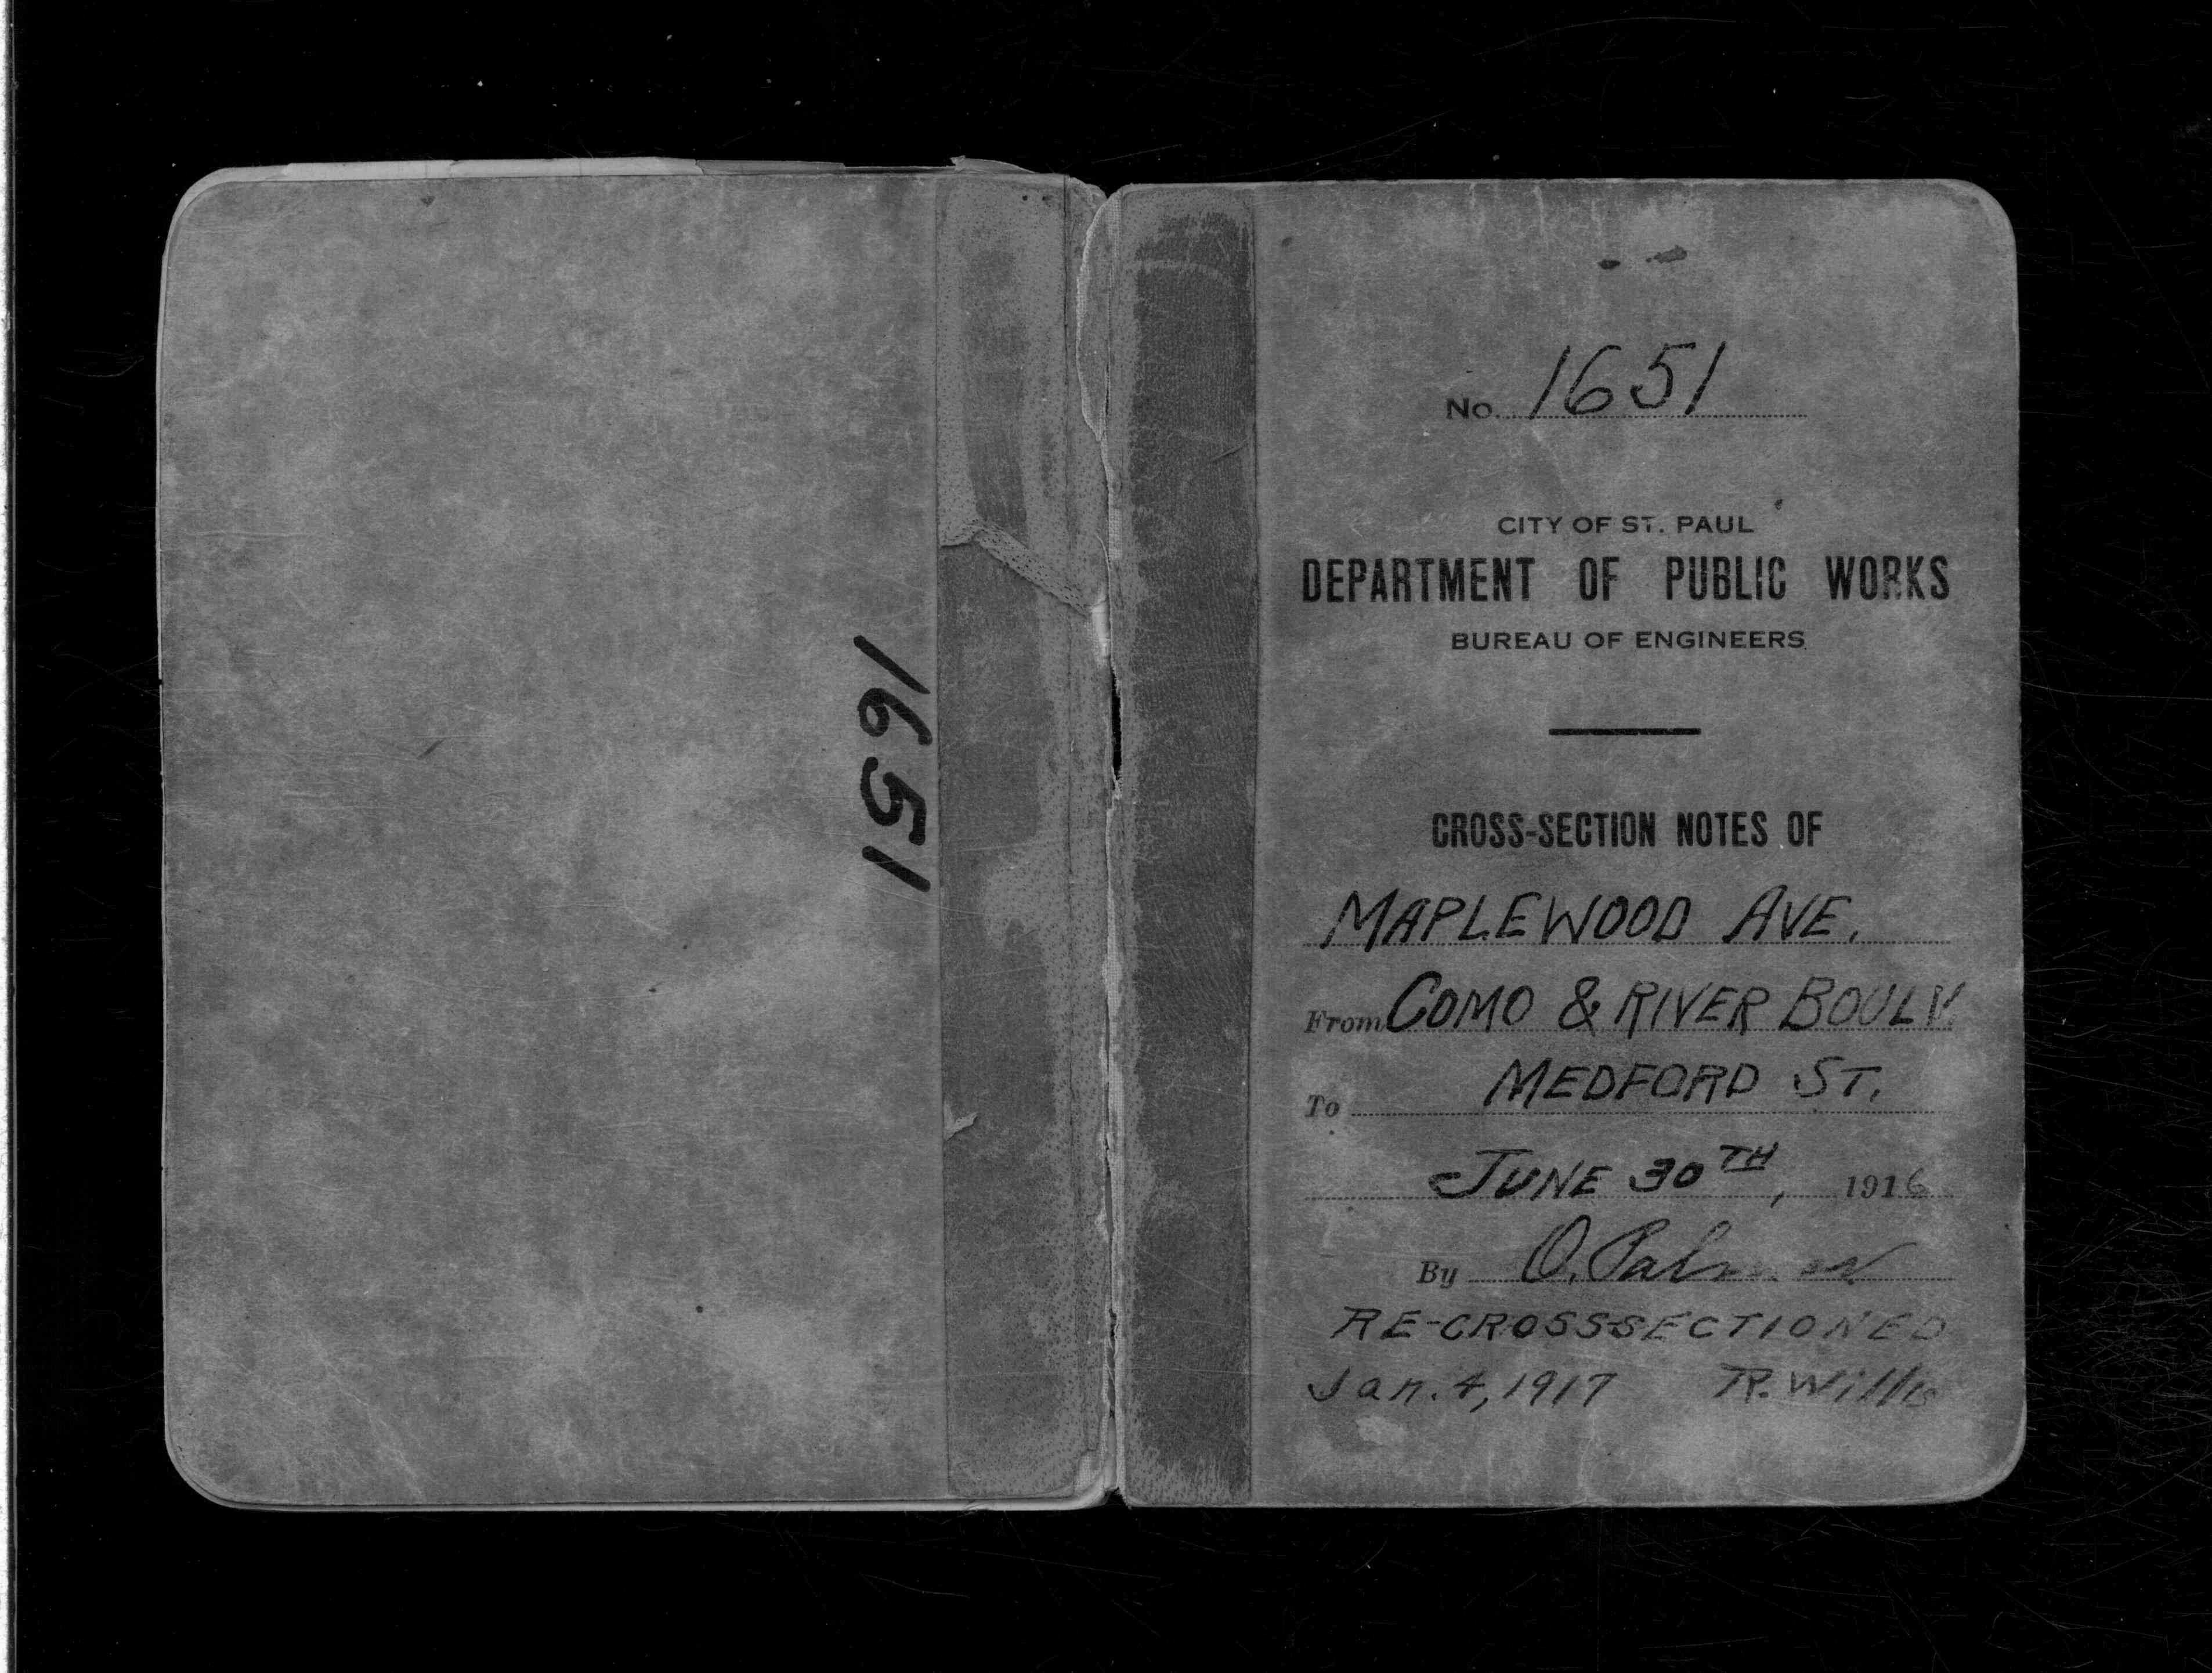 1651
No. 1651
CITY OF ST. PAUL
DEPARTMENT OF PUBLIC WORKS
BUREAU OF ENGINEERS
CROSS-SECTION NOTES OF
MAPLEWOOD AVE.
From COMO & RIVER BOULV.
To MEDFORD ST.
JUNE 30TH, 1916
By O. Palmer
RE-CROSSSECTIONED
Jan. 4, 1917 R. Willis